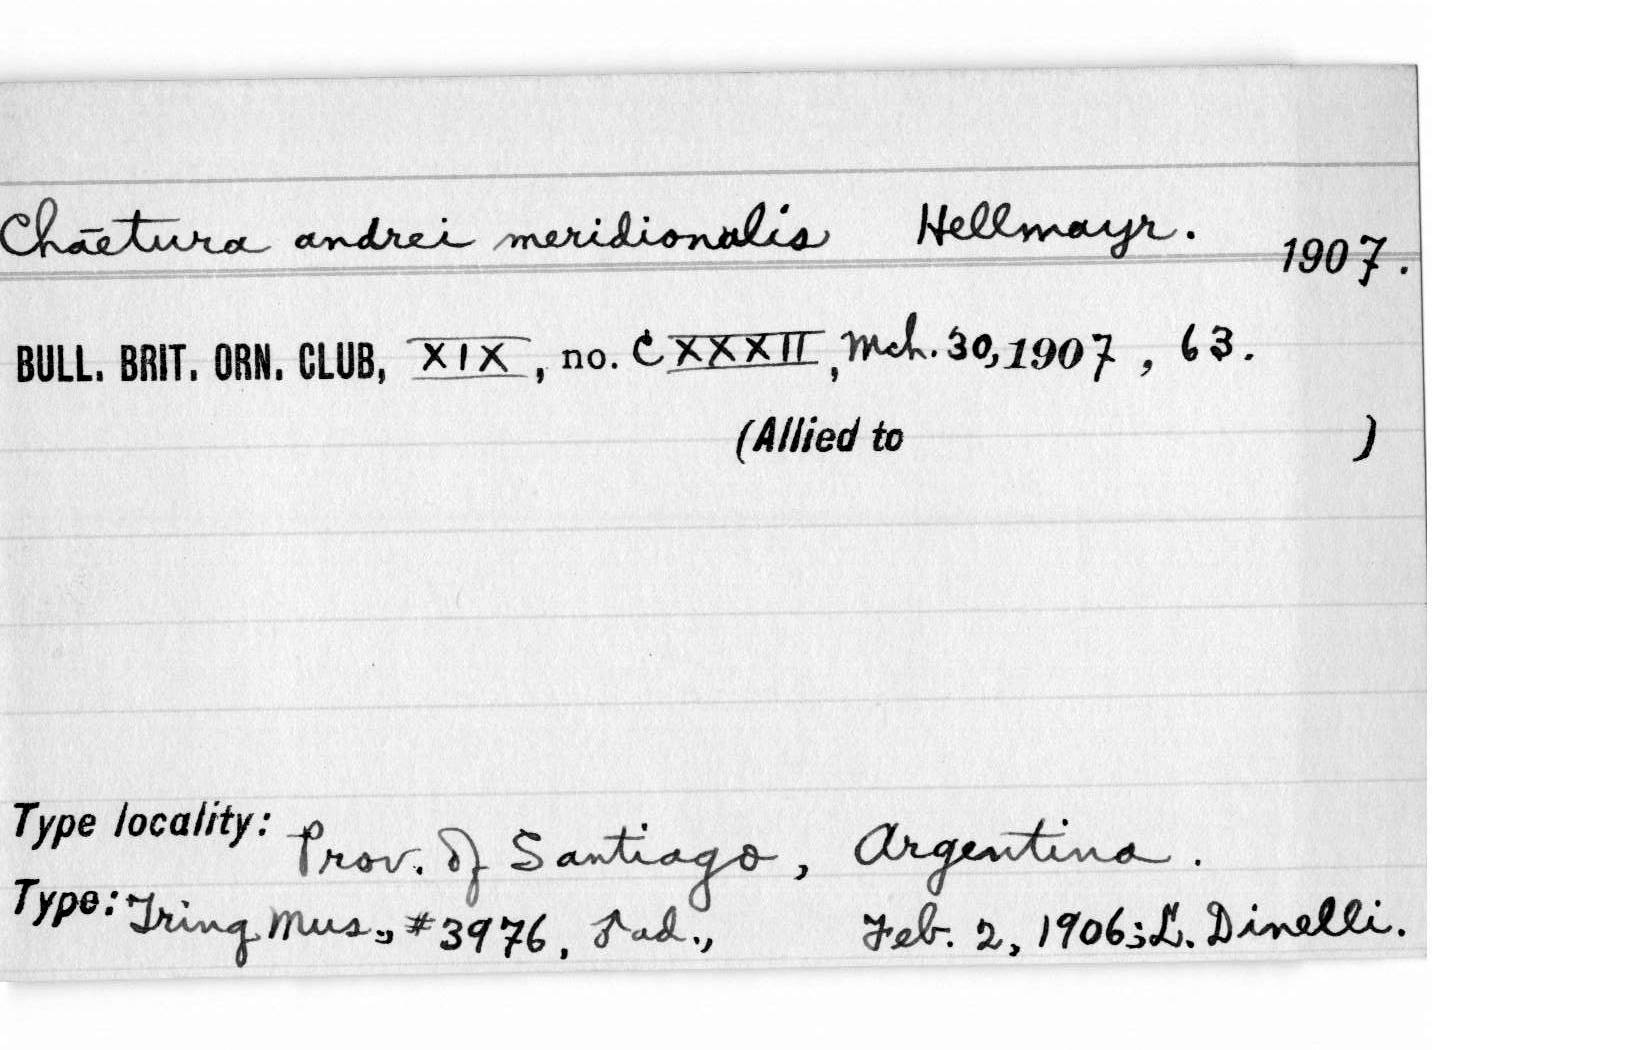 Chaetura andrei meridionalis Hellmayr. 1907.
BULL. BRIT. ORN. CLUB, XIX, no. CXXXII, Mch. 30, 1907, 63.
(Allied to )
Type locality: Prov. of Santiago, Argentina.
Type: Tring Mus., #3976, ♂ ad., Feb. 2, 1906; L. Dinelli.